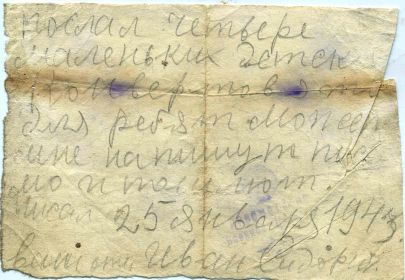 послал четвере
маленьких детск
конвертов эти
для ребят может
мне напишут пис
мо и пошлют.
писал 25 января 1943.
ваш отец Иван